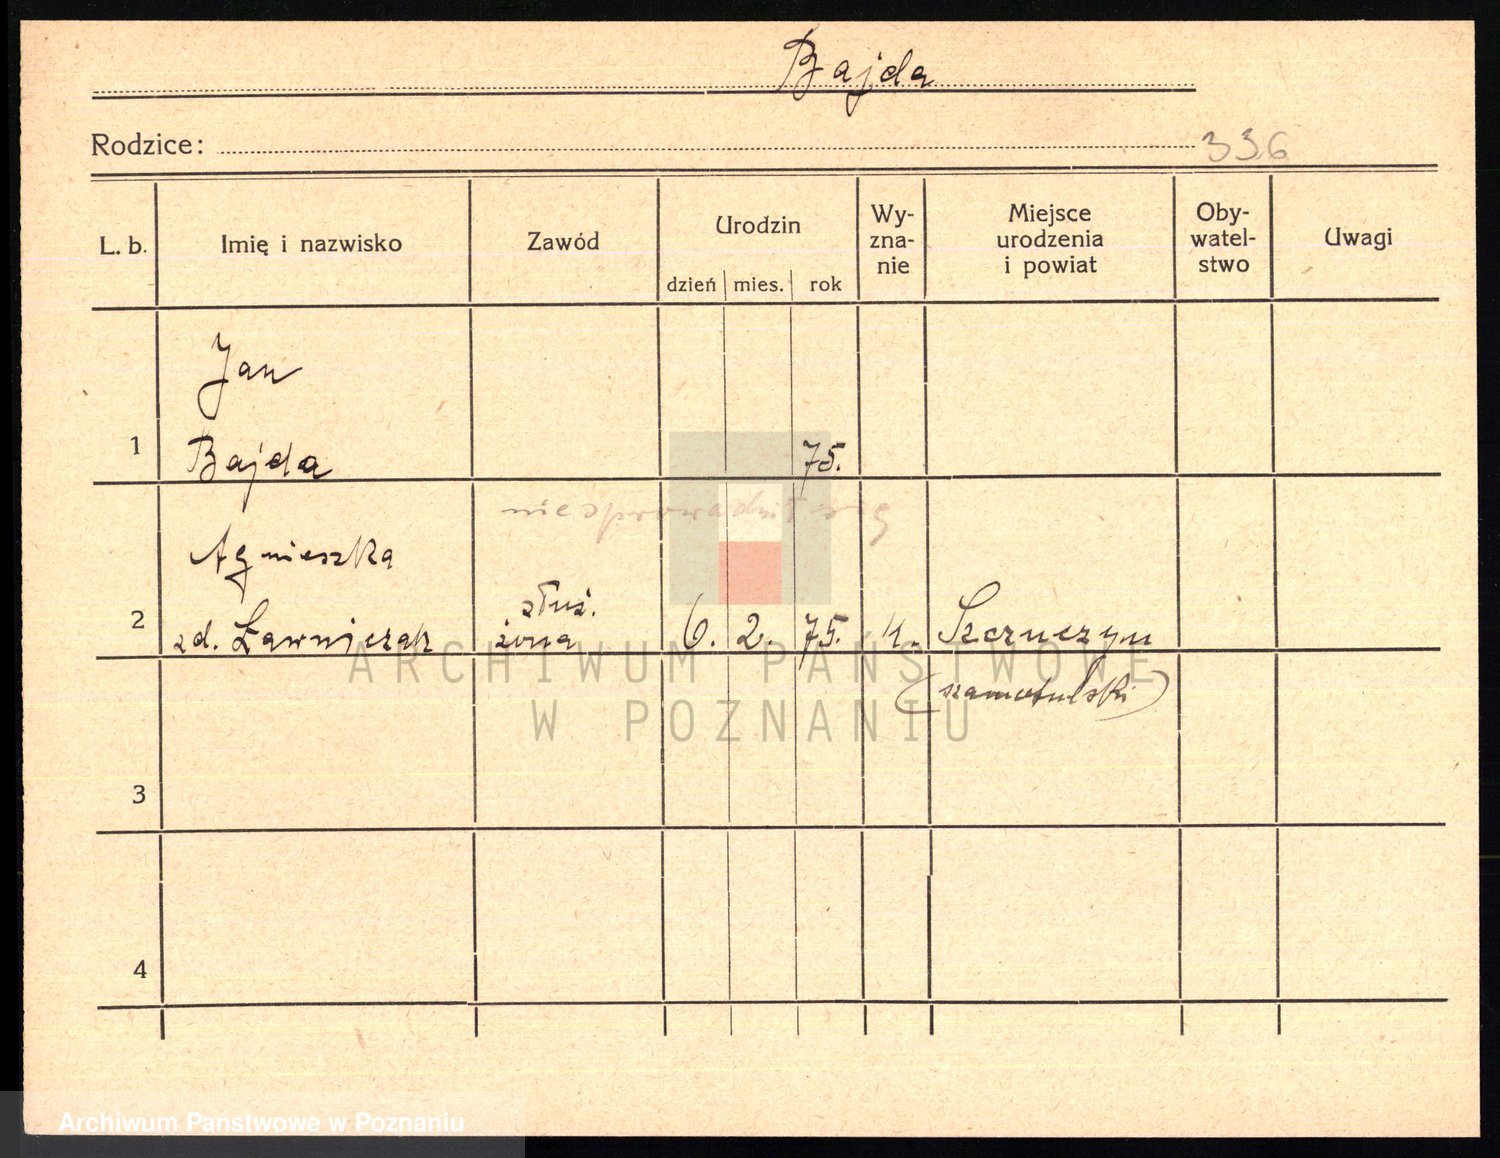 Bajda
Rodzice:
336
L. b.
Imię i nazwisko
Zawód
Urodzin
dzień mies. rok
Wy-
zna-
nie
Miejsce
urodzenia
i powiat
Oby-
watel-
stwo
Uwagi
Jan
1 Bajda 75.
nie sprowadził się
Agnieszka
służ.
2 zd. Ławniczak żona 6. 2. 75. k. Szczuczyn
(szamotulski)
ARCHIWUM PAŃSTWOWE
W POZNANIU
3
4
Archiwum Państwowe w Poznaniu